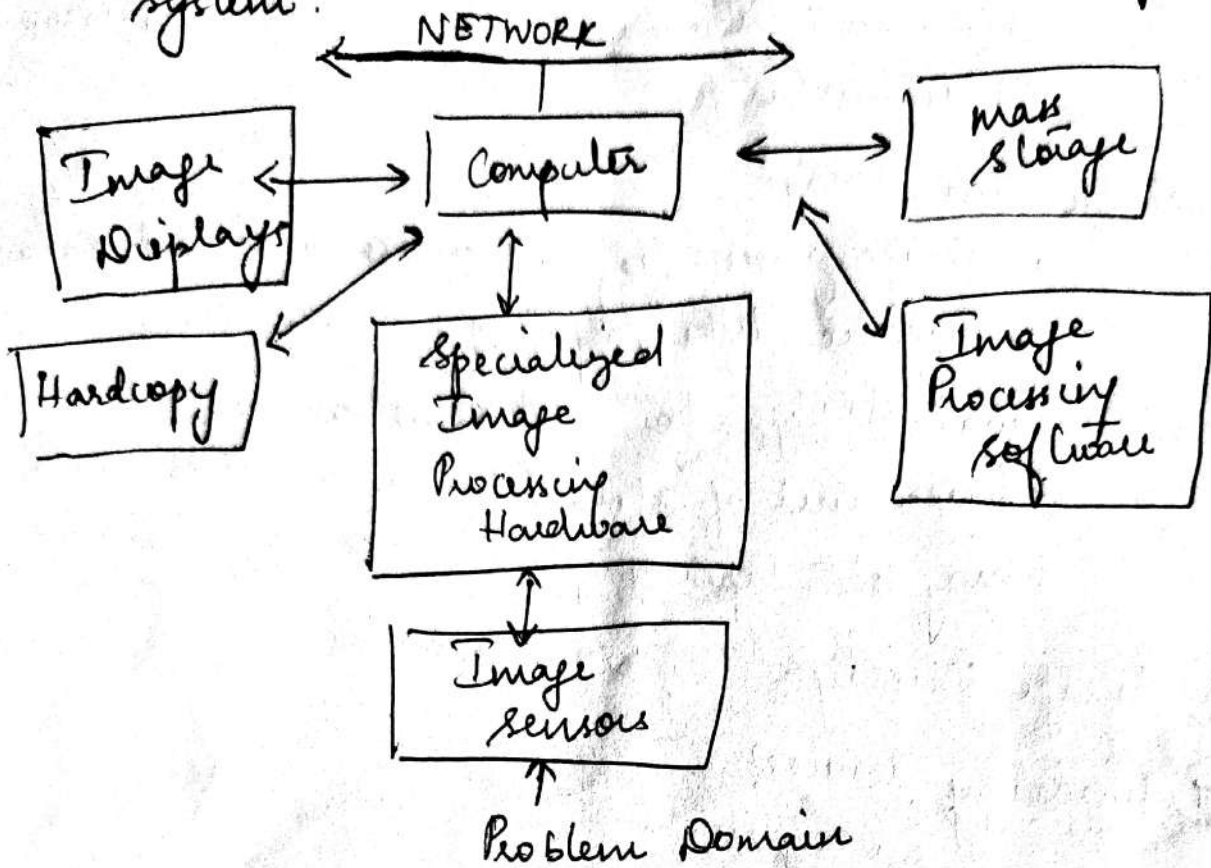 system.
NETWORK
Image
Displays
Computer
mass
storage
Hardcopy
Specialized
Image
Processing
Hardware
Image
Processing
software
Image
sensors
Problem Domain